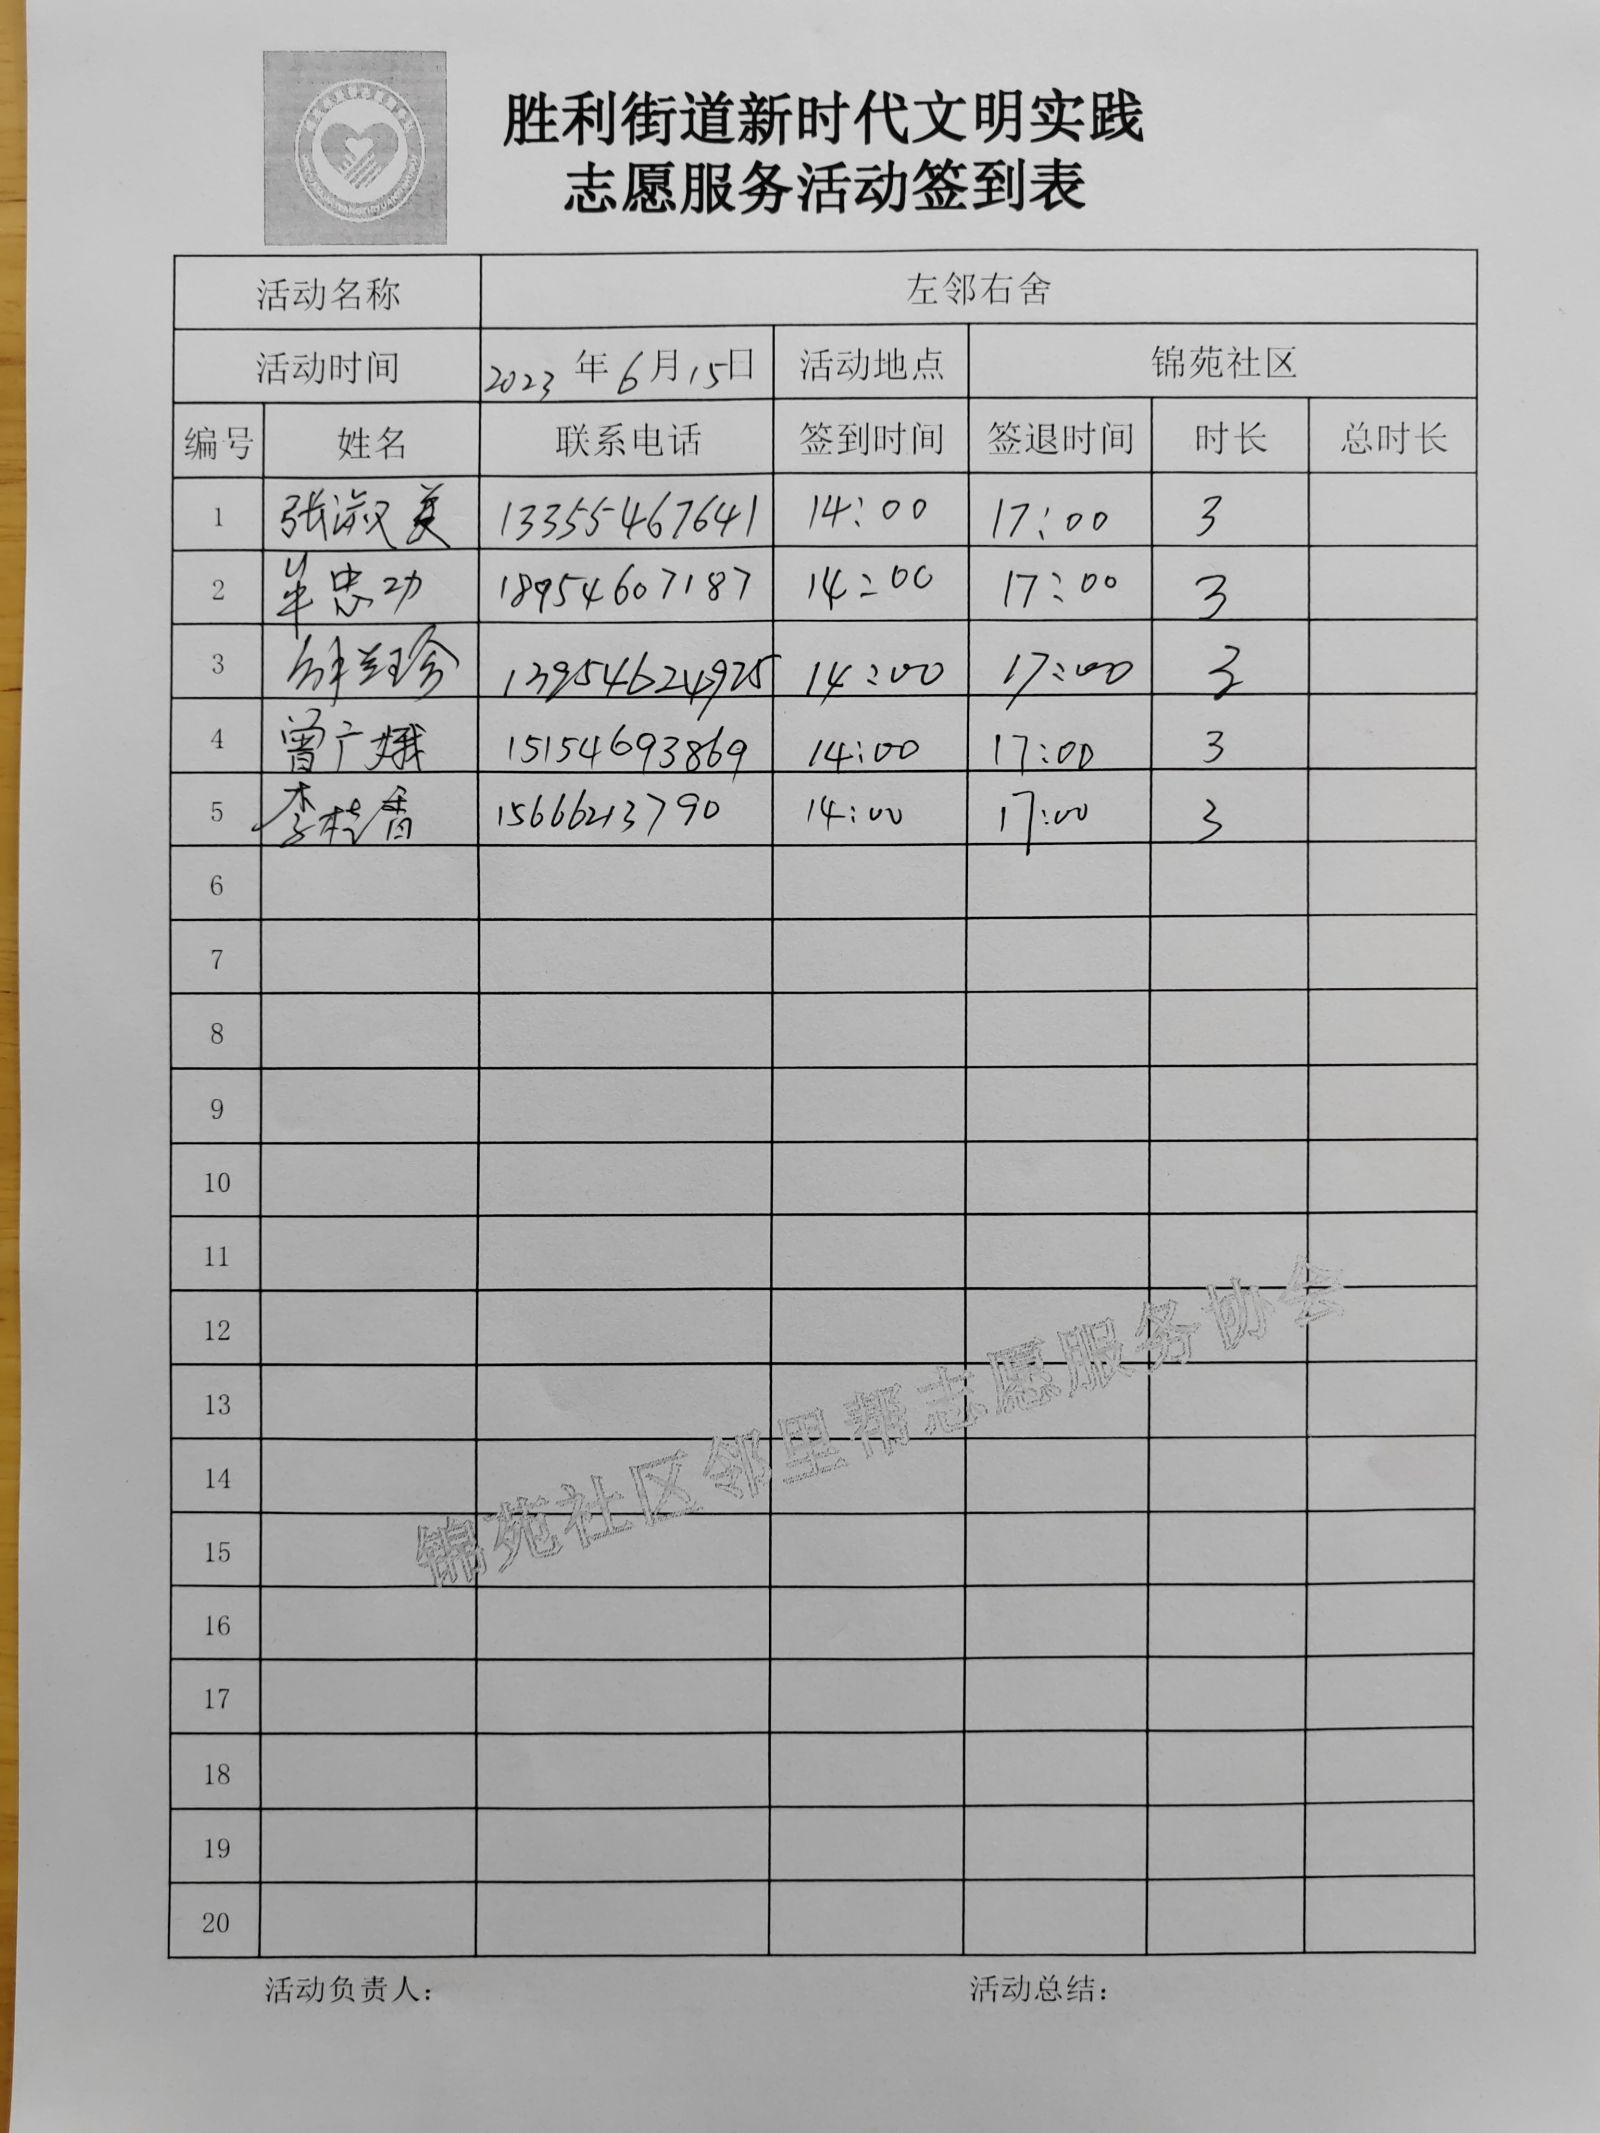 胜利街道新时代文明实践
志愿服务活动签到表
活动名称 左邻右舍
活动时间 2023 年 6 月 15 日 活动地点 锦苑社区
编号 姓名 联系电话 签到时间 签退时间 时长 总时长
1 张淑美 13355467641 14:00 17:00 3
2 牟忠功 18954607187 14:00 17:00 3
3 13954624925 14:00 17:00 3
4 曾广娥 15154693869 14:00 17:00 3
5 李桂香 15666213790 14:00 17:00 3
6
7
8
9
10
11
12
13
14
15
16
17
18
19
20
锦苑社区邻里帮志愿服务协会
活动负责人： 活动总结：